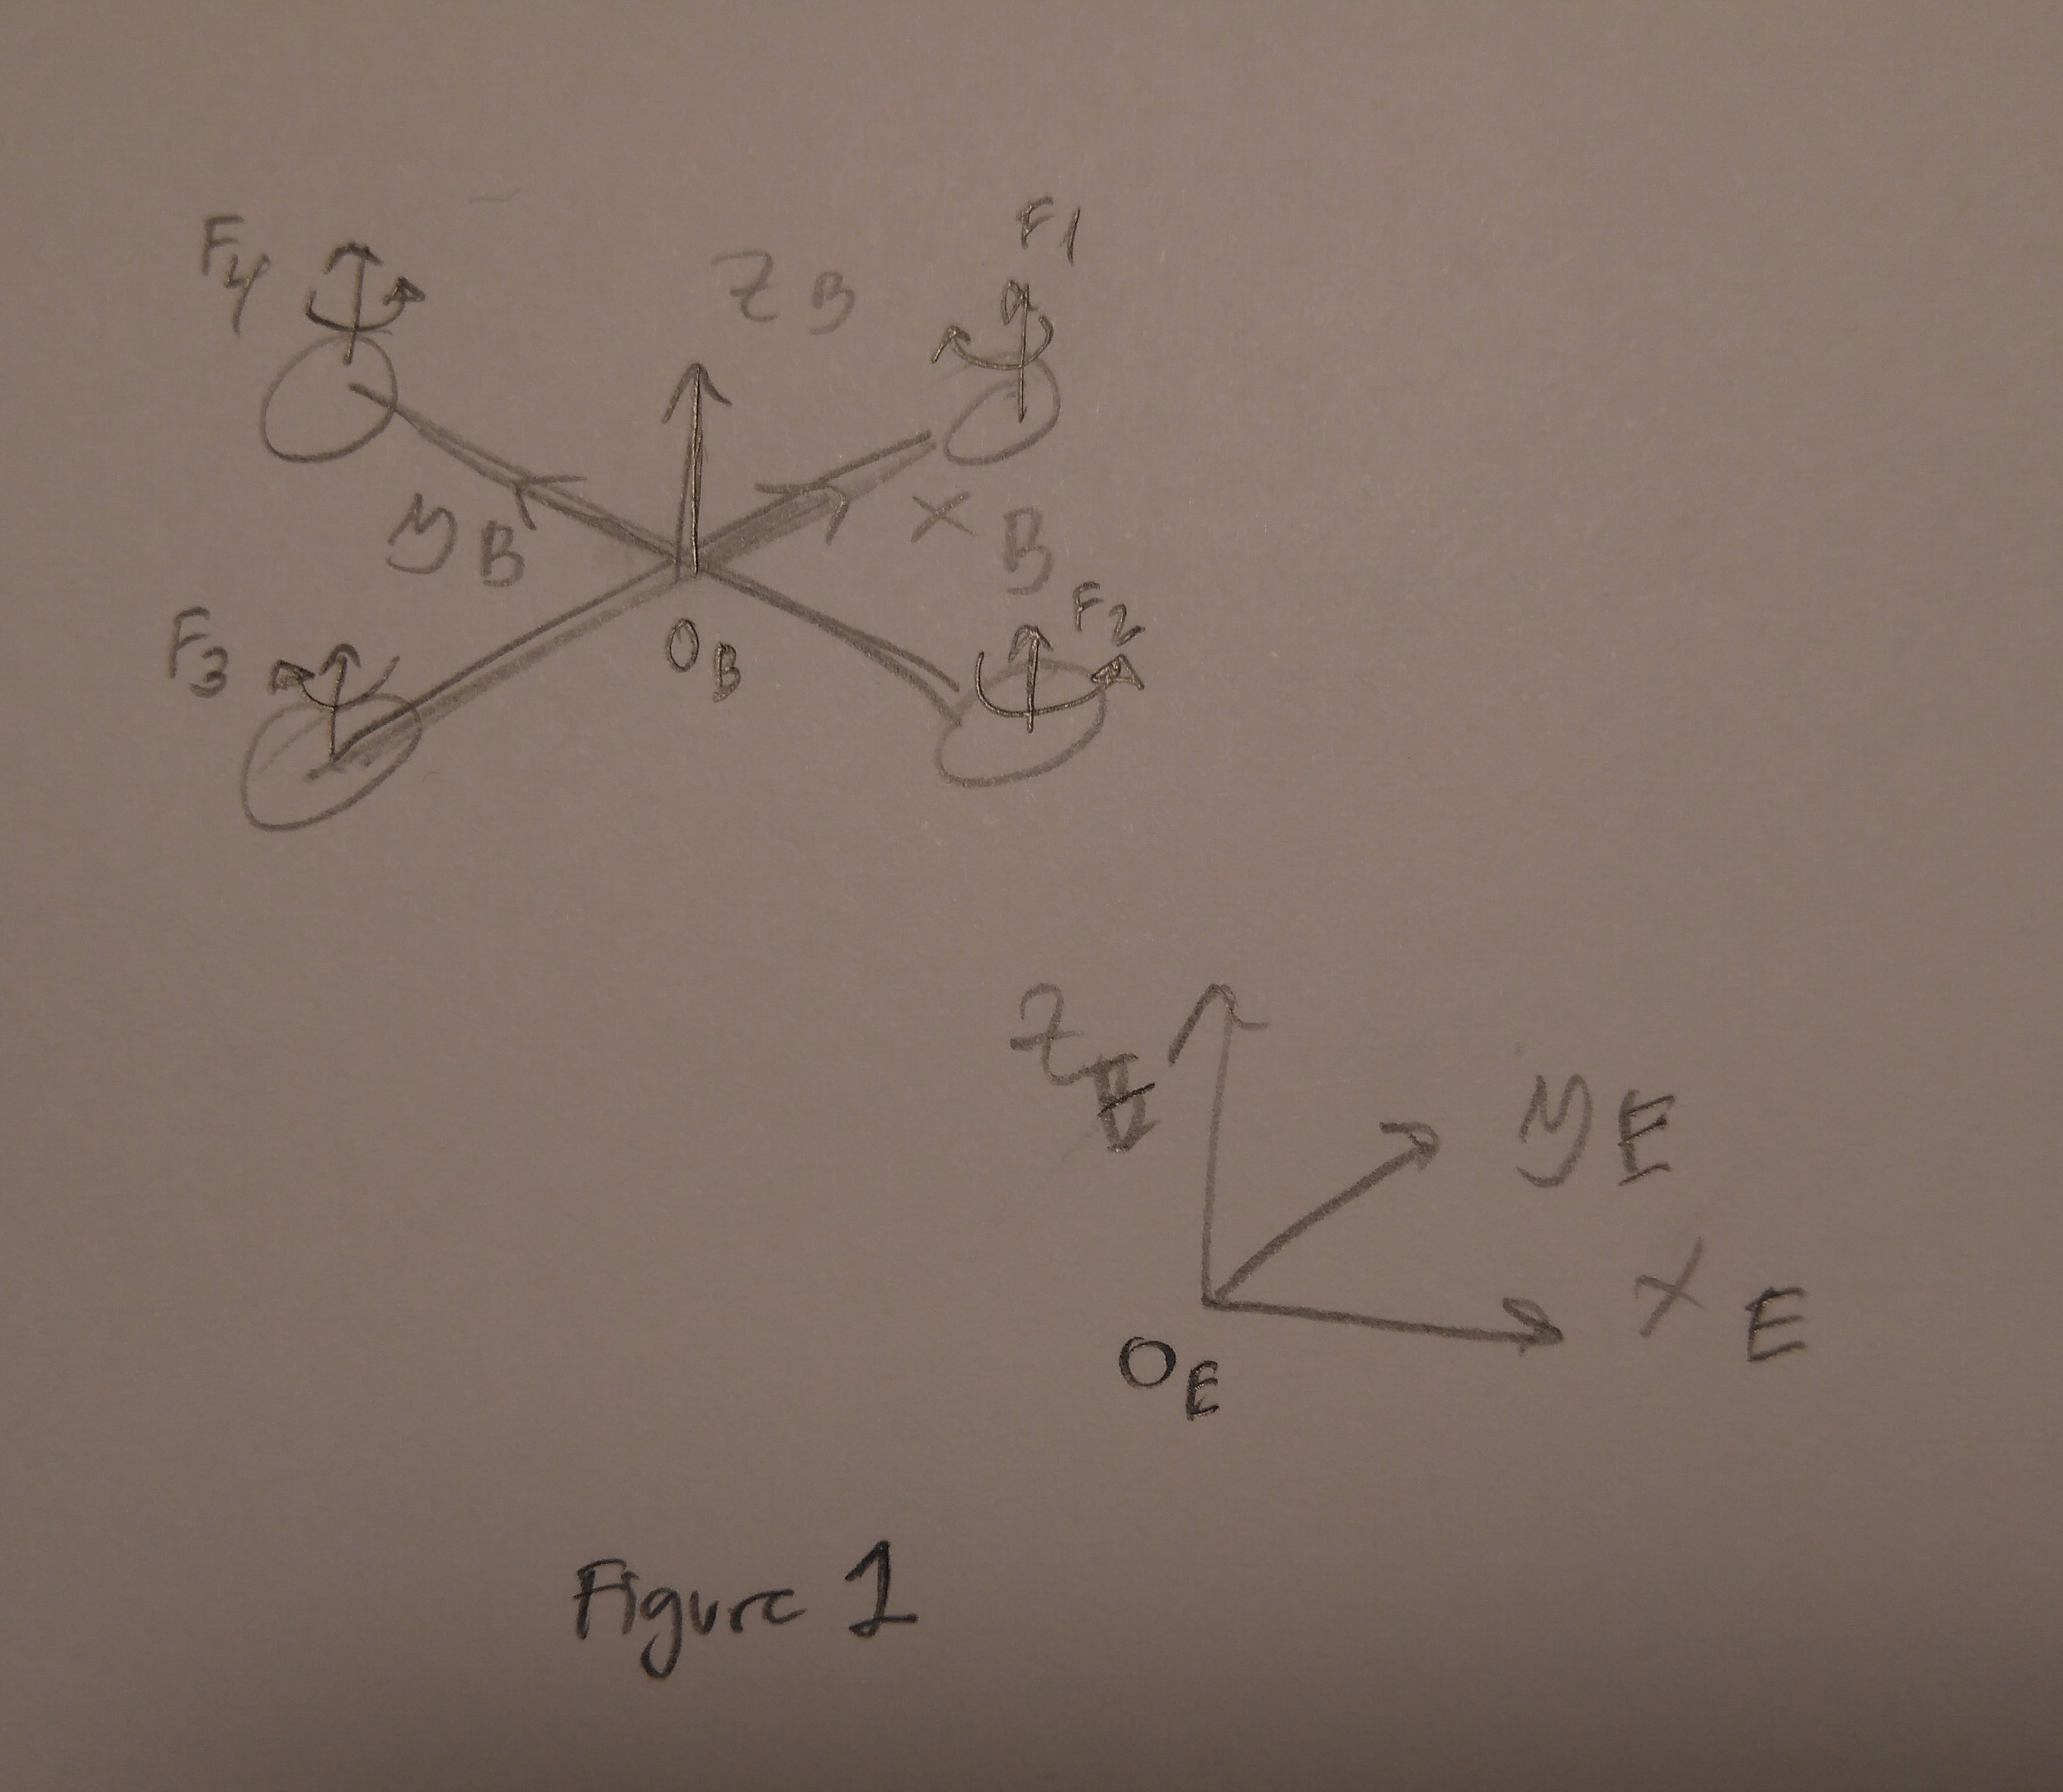 F1
F4
ZB
yB
xB
F2
F3
OB
ZE
yE
xE
OE
Figure 1